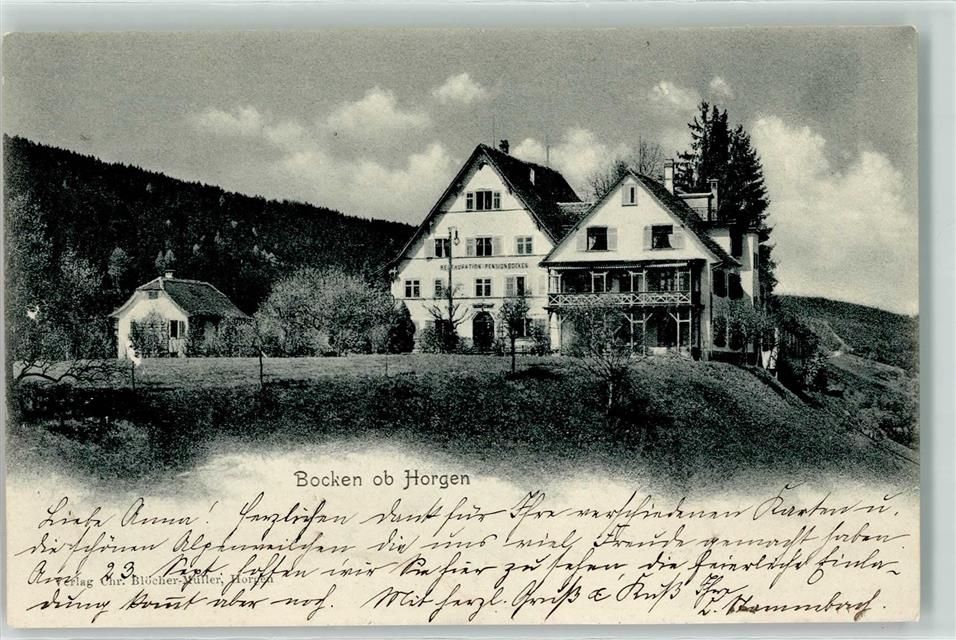 RESTAURATION-PENSION BOCKEN
Bocken ob Horgen
Liebe Anna! Herzlichen dank für Ihre verschiedenen Karten u.
die schönen Alpenveilchen die uns viel Freude gemacht haben.
Am 23 Sept. hoffen wir Sie hier zu sehen die feierliche Einla-
Verlag Chr. Blocher-Müller, Horgen
dung kom̅t aber noch. Mit herzl. Gruß & Kuß Ihre
Stammbach.